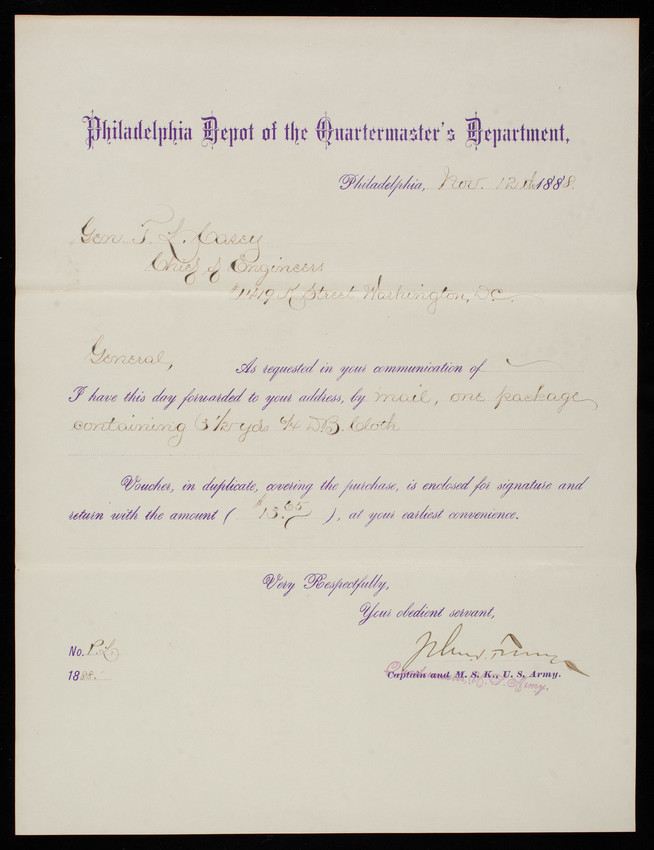 Philadelphia Depot of the Quartermaster's Department,
Philadelphia, Nov. 12th 1888.
Gen T. L. Casey
Chief of Engineers
1419 K Street Washington, D.C.
General,
As requested in your communication of
I have this day forwarded to your address, by mail, one package
containing 3 1/2 yds 6/4 D.B. Cloth
Voucher, in duplicate, covering the purchase, is enclosed for signature and
return with the amount ( $13.65 ), at your earliest convenience.
Very Respectfully,
Your obedient servant,
No. P.L.
1888.
Captain and M. S. K., U. S. Army.
U. S. Army.